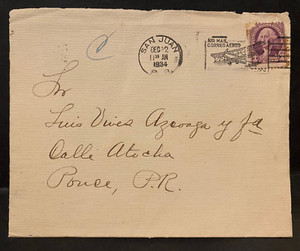 SAN JUAN
DEC 12
11 AM
1934
P. R.
AIR MAIL
CORREO AEREO
3
Sr.
Luis Vives Azcoaga y fa
Calle Atocha
Ponce, P.R.